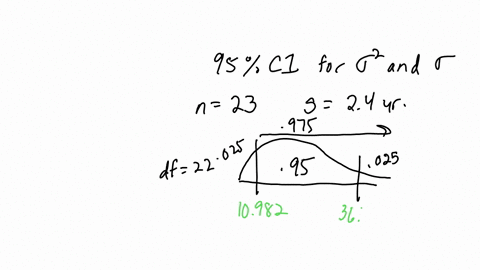 95% CI for σ² and σ
n = 23 s = 2.4 yr.
.975
df = 22 .025 .95 .025
10.982 36.